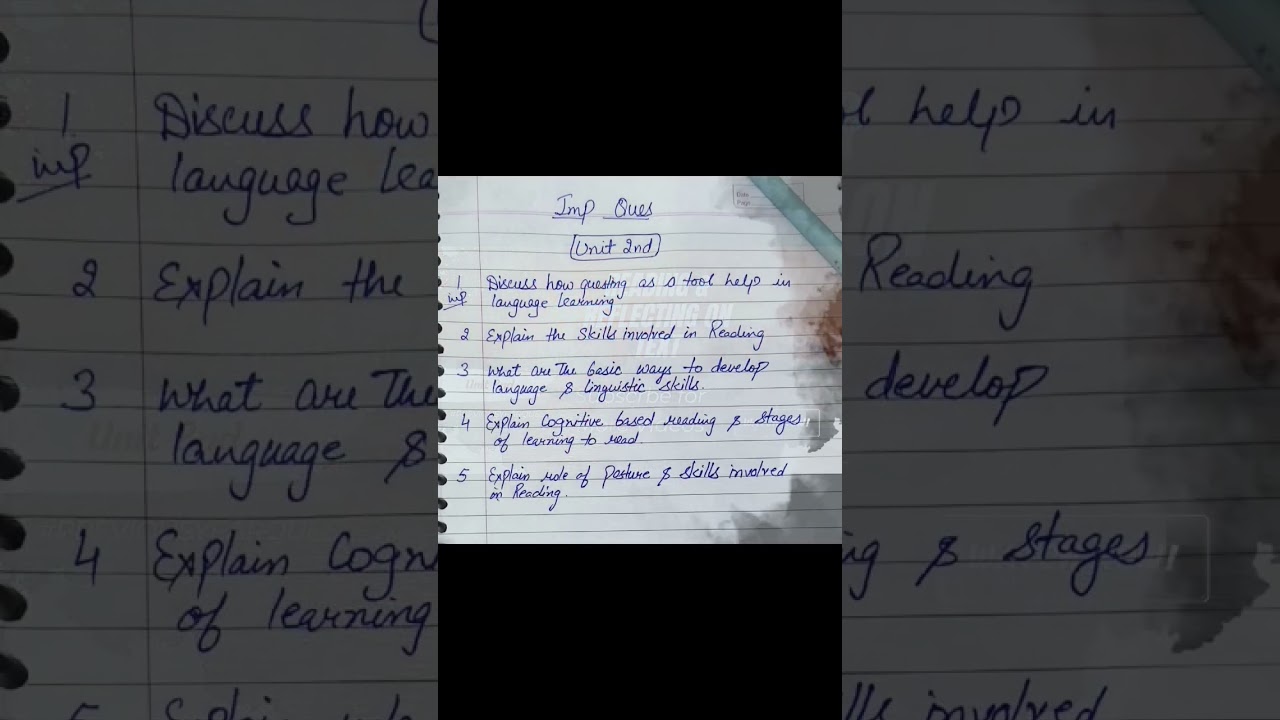 Imp Ques
Unit 2nd
1 Discuss how questing as a tool help in
imp language learning
2 Explain the skills involved in Reading
3 what are the basic ways to develop
language & linguistic skills.
4 Explain Cognitive based reading & stages
of learning to read.
5 Explain role of Posture & skills involved
in Reading.